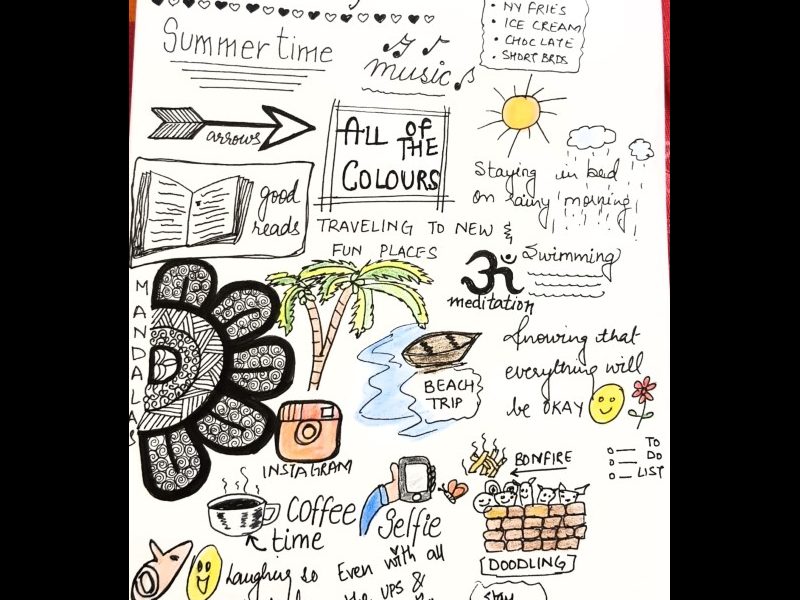 • NY FRIES
• ICE CREAM
• CHOCLATE
• SHORT BRDS
Summer time
music
arrows
ALL OF
THE
COLOURS
good
reads
Staying in bed
on rainy morning
TRAVELING TO NEW &
FUN PLACES
Swimming
ॐ
meditation
MANDALAS
Knowing that
everything will
be OKAY
BEACH
TRIP
INSTAGRAM
BONFIRE
TO
DO
LIST
Coffee
time
Selfie
DOODLING
Laughing so
Even with all
the UPS &
Stay